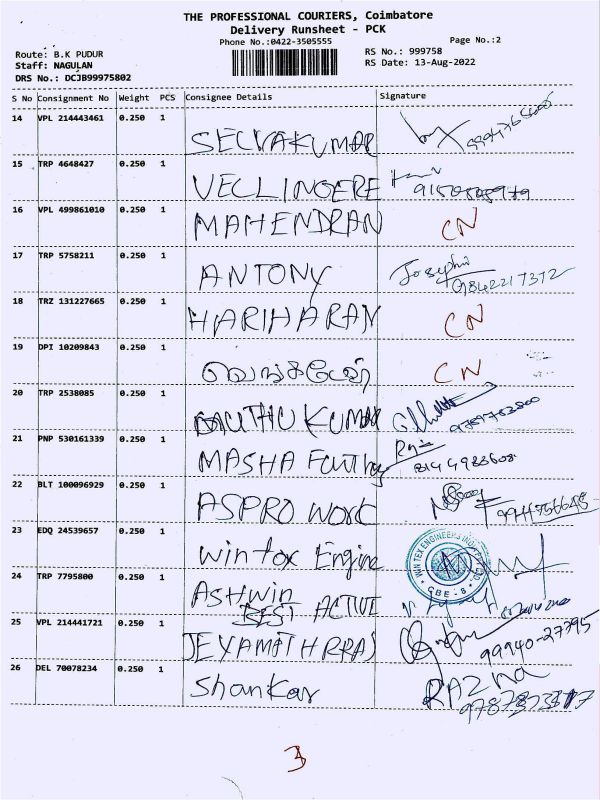 THE PROFESSIONAL COURIERS, Coimbatore
Delivery Runsheet - PCK
Phone No.:0422-3505555
Page No.:2
Route: B.K PUDUR
RS No.: 999758
Staff: NAGULAN
RS Date: 13-Aug-2022
DRS No.: DCJB99975802
S No Consignment No Weight PCS Consignee Details Signature
14 VPL 214443461 0.250 1 SELVAKUMAR
15 TRP 4648427 0.250 1 VELLINGERE
16 VPL 499861010 0.250 1 MAHENDRAN CN
17 TRP 5758211 0.250 1 ANTONY Josephin
9842217312
18 TRZ 131227665 0.250 1 HARIHARAN CN
19 DPI 10209843 0.250 1 CN
20 TRP 2538085 0.250 1 MUTHU KUMAR
21 PNP 530161339 0.250 1 MASHA
8144983608
22 BLT 100096929 0.250 1 ASPRO Work
23 EDQ 24539657 0.250 1 Wintox Engine
WIN TEX ENGINEERS
CBE - 8
24 TRP 7795800 0.250 1 ASHWIN
BEST ACTIVE
25 VPL 214441721 0.250 1 JEYAMITHRRAS
99940-27395
26 DEL 70078234 0.250 1 Shankar RAZNA
3